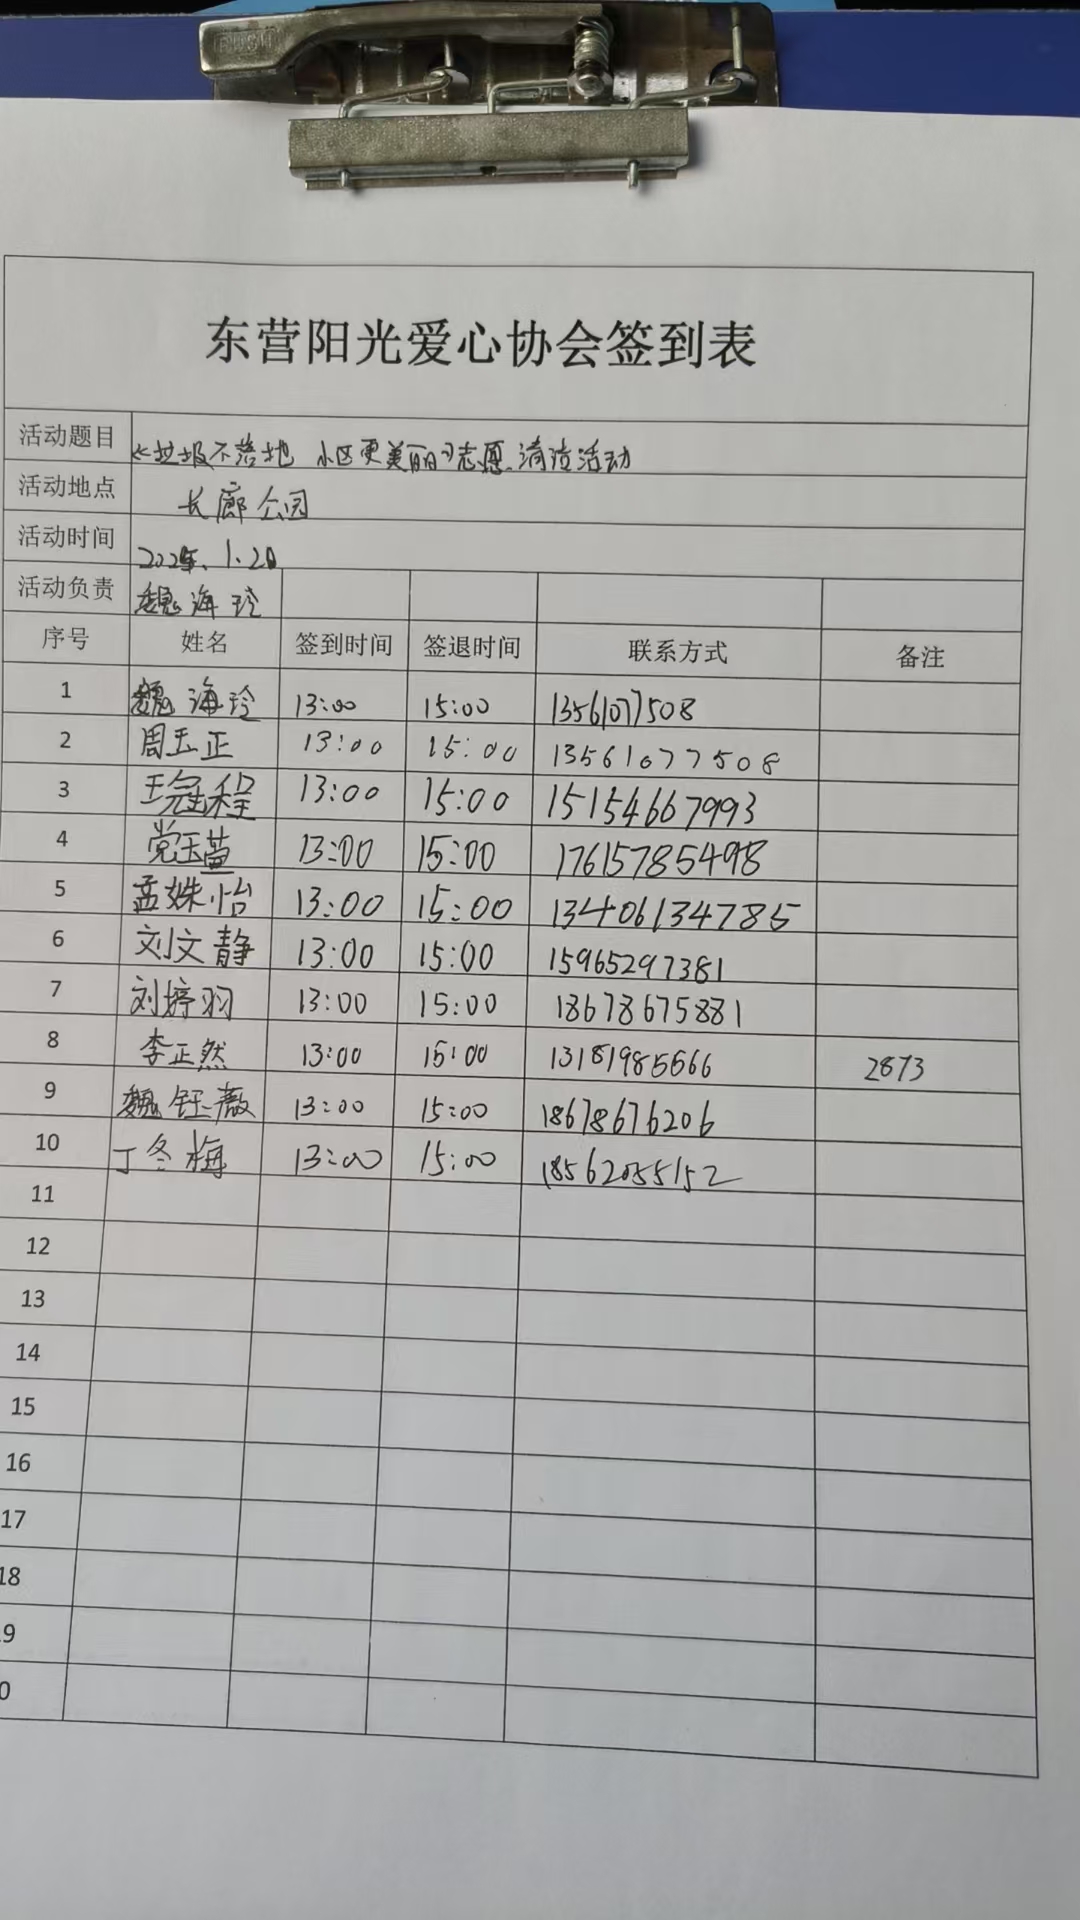 东营阳光爱心协会签到表
活动题目 《垃圾不落地 小区更美丽》志愿清洁活动
活动地点 长廊公园
活动时间 2025年.1.20
活动负责 魏海玲
序号 姓名 签到时间 签退时间 联系方式 备注
1 魏海玲 13:00 15:00 13561077508
2 周玉正 13:00 15:00 13561077508
3 王冠程 13:00 15:00 15154667993
4 党玉萱 13:00 15:00 17615785498
5 孟姝怡 13:00 15:00 13406134785
6 刘文静 13:00 15:00 15965297381
7 刘婷羽 13:00 15:00 18678675881
8 李正然 13:00 15:00 13181985666 2873
9 魏钰薇 13:00 15:00 18678676206
10 丁冬梅 13:00 15:00 18562055152
11
12
13
14
15
16
17
18
9
0